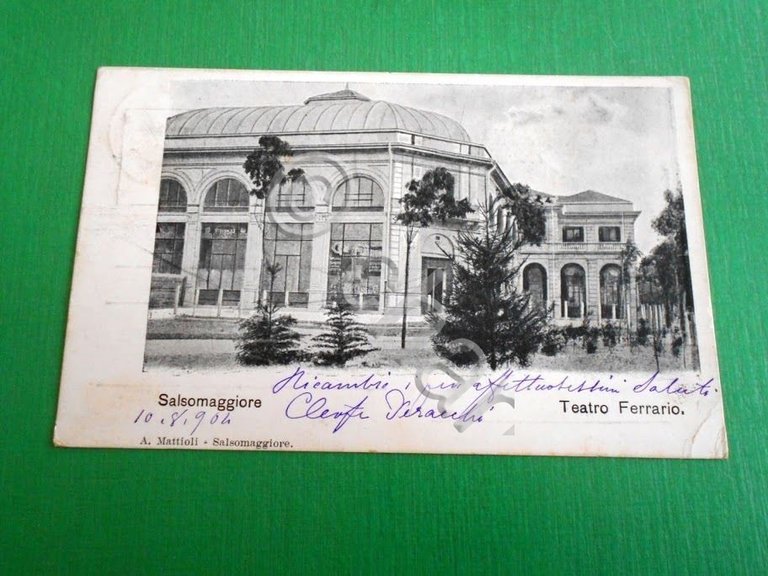 Ricambio i più affettuosissimi Saluti
Salsomaggiore
Cleofe
Teatro Ferrario.
10.8.904
A. Mattioli - Salsomaggiore.